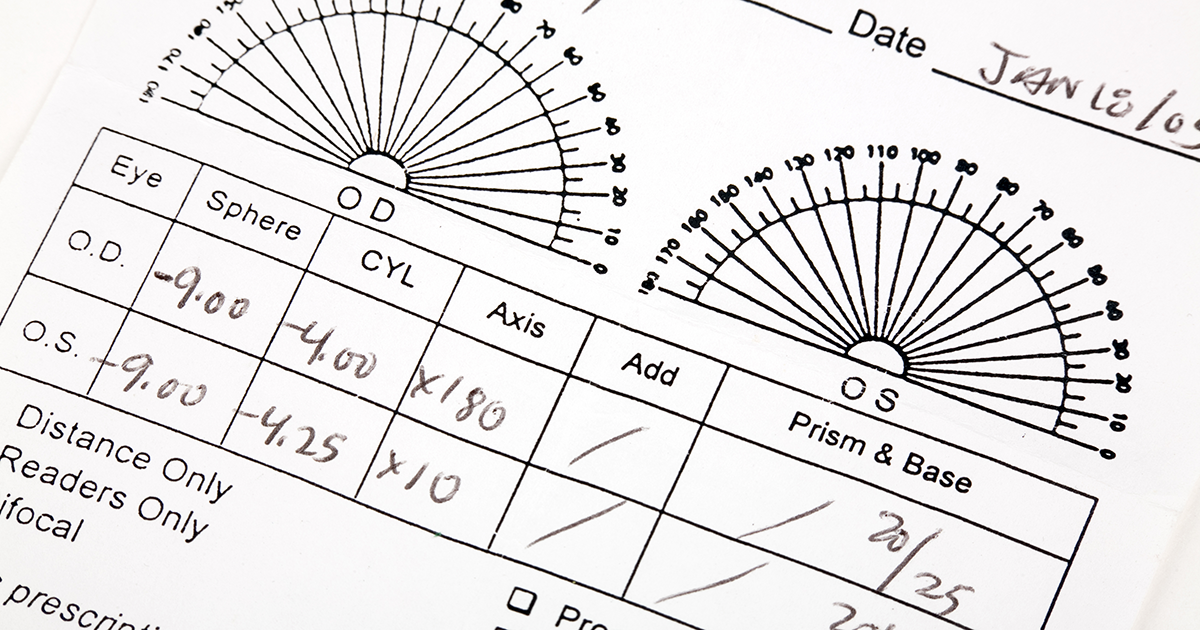 Date JAN 18/05
180 170 160 150 80 70 60 50 40 30 20 10 0
OD
180 170 160 150 140 130 120 110 100 90 80 70 60 50 40 30 20 10 0
OS
Eye Sphere CYL Axis Add Prism & Base
O.D. -9.00 -4.00 x180 / / 20/25
O.S. -9.00 -4.25 x10 / /
Distance Only
Readers Only
ifocal
prescripti
Pro